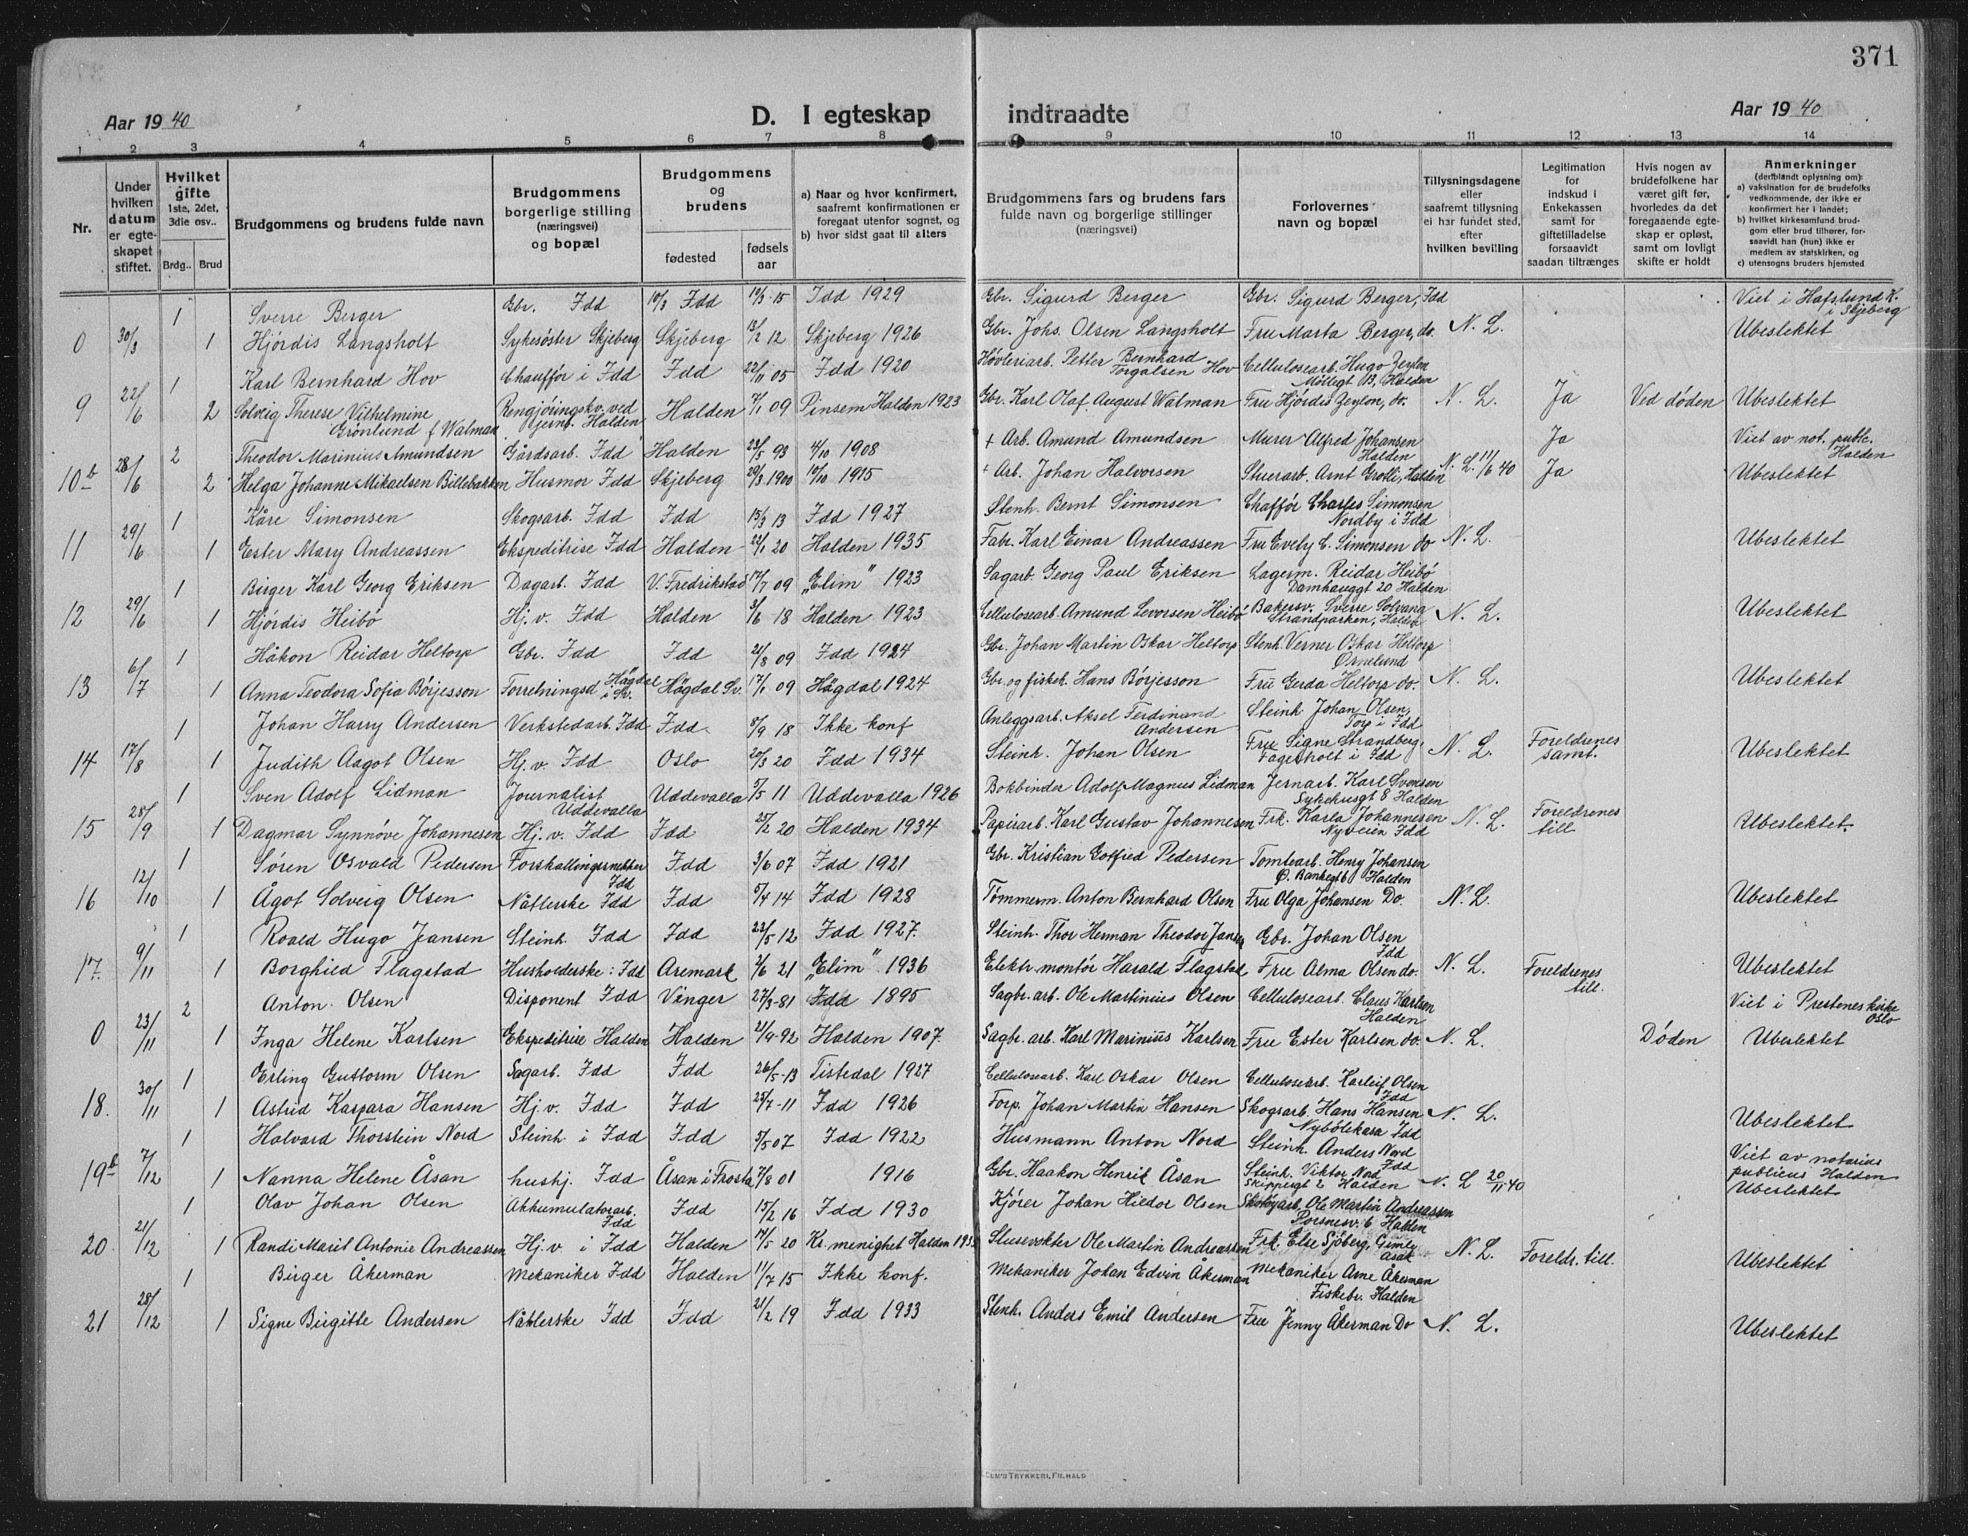 371
Aar 1940 D. I egteskap indtraadte Aar 1940
1 2 3 4 5 6 7 8 9 10 11 12 13 14
Nr.
Under hvilken datum er egteskapet stiftet.
Hvilket gifte 1ste, 2det, 3die osv..
Brdg.. Brud
Brudgommens og brudens fulde navn
Brudgommens borgerlige stilling (næringsvei) og bopæl
Brudgommens og brudens
fødested fødsels aar
a) Naar og hvor konfirmert, saafremt konfirmationen er foregaat utenfor sognet, og
b) hvor sidst gaat til alters
Brudgommens fars og brudens fars fulde navn og borgerlige stillinger (næringsvei)
Forlovernes navn og bopæl
Tillysningsdagene eller saafremt tillysning ei har fundet sted, efter hvilken bevilling
Legitimation for indskud i Enkekassen samt for giftetilladelse forsaavidt saadan tiltrænges
Hvis nogen av brudefolkene har været gift før, hvorledes da det foregaaende egteskap er opløst, samt om lovligt skifte er holdt
Anmerkninger (deriblandt oplysning om):
a) vaksination for de brudefolks vedkommende, der ikke er konfirmert her i landet;
b) hvilket kirkesamfund brudgom eller brud tilhører, forsaavidt han (hun) ikke er medlem av statskirken, og
c) utensogns bruders hjemsted
1 Sverre Berger Gbr. Idd 10/3 Idd 10/3-15 Idd 1929 Gbr. Sigurd Berger Gbr. Sigurd Berger, Idd Viet i Hafslund K. i Skjeberg
0 30/3 1 Hjørdis Langsholt Sykesøster Skjeberg Skjeberg 13/2 12 Skjeberg 1926 Gbr. Johs. Olsen Langsholt Fru Marta Berger, do. N. L. Ubeslektet
1 Karl Bernhard Hov Chauffør i Idd Idd 22/11 05 Idd 1920 Høvleriarb. Petter Bernhard Torgalsen Hov Cellulosearb. Hugo Zeylon Møllegt 13, Halden
9 22/6 2 Solveig Therese Vilhelmine Grønlund f Walman Rengjøringskv. ved jernb. Halden Halden 7/1 09 Pinsem Halden 1923 Gbr. Karl Olaf August Walman Fru Hjørdis Zeylon, do. N. L. Ja Ved døden Ubeslektet
2 Theodor Marinius Amundsen Gårdsarb. Idd Halden 23/5 93 4/10 1908 + Arb. Amund Amundsen Murer Alfred Johansen Halden Ja Viet av not. public. Halden
10b 28/6 2 Helga Johanne Mikaelsen Billebakken Husmor Idd Skjeberg 29/3 1900 10/10 1915 + Arb. Johan Halvorsen Stuerarb. Arnt Grotli, Halden N. L. 11/6 40 Ja Ubeslektet
1 Kåre Simonsen Skogsarb. Idd Idd 15/3 13 Idd 1927 Stenh. Bernt Simonsen Chaffør Charles Simonsen Nordby i Idd
11 29/6 1 Ester Mary Andreassen Ekspeditrise Idd Halden 22/1 20 Halden 1935 Fabr. Karl Einar Andreassen Fru Evely C. Simonsen do N. L. Ubeslektet
1 Birger Karl Georg Eriksen Dagarb. Idd V. Fredrikstad 17/7 09 „Elim" 1923 Sagarb. Georg Paul Eriksen Lagerm. Reidar Heibø Damhauggt 20 Halden
12 29/6 1 Hjørdis Heibø Hj. v. Idd Halden 3/6 18 Halden 1923 Cellulosearb. Amund Levorsen Heibø Bakersv. Sverre Solvang Strandparken, Halden N. L. Ubeslektet
1 Håkon Reidar Heltorp Gbr. Idd Idd 21/8 09 Idd 1924 Gbr. Johan Martin Oskar Heltorp Stenh. Verner Oskar Heltorp Ørmlund
13 6/7 1 Anna Teodora Sofia Børjesson Forretningsd Högdal i Sv. Högdal Sv. 17/1 09 Högdal 1924 Gbr. og fisker Hans Børjesson Fru Gerda Heltorp do. N. L. Ubeslektet
1 Johan Harry Andersen Verkstedarb. Idd Idd 5/9 18 Ikke konf Anleggsarb. Aksel Ferdinand Andersen Steinh. Johan Olsen, Torp i Idd
14 17/8 1 Judith Aagot Olsen Hj. v. Idd Oslo 20/3 20 Idd 1934 Steinh. Johan Olsen Fru Signe Strandberg, Fagerholt i Idd N. L. Foreldrenes samt. Ubeslektet
1 Sven Adolf Lidman Journalist Uddevalla Uddevalla 5/5 11 Uddevalla 1926 Bokbinder Adolf Magnus Lidman Jernarb. Karl Svensen Sykehusgt 8 Halden
15 28/9 1 Dagmar Synnøve Johannesen Hj. v. Idd Idd 25/2 20 Halden 1934 Papirarb. Karl Gustav Johannesen Frk. Karla Johannesen Nyveien Idd N. L. Foreldrenes till Ubeslektet.
1 Søren Osvald Pedersen Forskallingsmekker Idd Idd 3/6 07 Idd 1921 Gbr. Kristian Gotfied Pedersen Tomtearb. Henry Johansen Ø. Bankegt Halden
16 12/10 1 Ågot Solveig Olsen Nåtlerske Idd Idd 5/4 14 Idd 1928 Tømmerm. Anton Bernhard Olsen Fru Olga Johansen Do. N. L. Ubeslektet
1 Roald Hugo Jansen Steinh. Idd Idd 22/5 12 Idd 1927. Steinh. Thor Herman Theodor Jansen Gbr. Johan Olsen Idd
17. 9/11 1 Borghild Flagstad Husholderske: Idd Aremark 2/6 21 „Elim" 1936 Elektr. montør Harald Flagstad Fru Alma Olsen do. N. L. Foreldrenes till. Ubeslektet
2 Anton. Olsen Disponent Idd Vinger 27/3-81 Idd 1895 Sagbr. arb. Ole Martinius Olsen Cellulosearb. Claus Karlsen Halden Viet i Prestenes kirke Oslo
0 23/11 1 Inga Helene Karlsen Ekspeditrise Halden Halden 21/9-92 Halden 1907. Sagbr. arb. Karl Marinius Karlsen Fru Ester Karlsen do. N. L. Døden Ubeslektet
1 Erling Guttorm Olsen Sagarb. Idd Idd 26/5-13 Tistedal 1927 Cellulosearb. Karl Oskar Olsen Cellulosearb. Karleif Olsen Idd
18. 30/11 1 Astrid Kaspara Hansen Hj. v. Idd Idd 25/7-11 Idd 1926 Forp. Johan Martin Hansen Skogsarb. Hans Hansen Nybølekasa Idd N. L. Ubeslektet
1 Halvard Thorstein Nord Steinh i Idd Idd 5/5 07 Idd 1922 Husmann Anton Nord Steinh. Anders Nord Idd Viet av notarius publicus Halden
19b 7/12 1 Nanna Helene Åsan hushj. Idd Åsan i Frosta 7/8 01 1916 Gbr. Haakon Henrik Åsan Steinh. Viktor Nod Skippergt 2 Halden N. L 20/11 40 Ubeslektet
1 Olav Johan Olsen Akkumulatorarb. Idd Idd 15/2 16 Idd 1930 Kjører Johan Hildor Olsen Skotøyarb. Ole Martin Andreassen Porsnesv. 6 Halden
20 21/12 1 Randi Marit Antonie Andreassen Hj. v i Idd Halden 17/5 20 Kr. menighet Halden Slusevokter Ole Martin Andreassen Frk. Else Sjøberg, Gimle Asak N. L. Foreldr. till. Ubeslektet
1 Birger Åkerman Mekaniker Idd Halden 11/7 15 Ikke konf. Mekaniker Johan Edvin Åkerman Mekaniker Arne Åkerman Fiskebr. Halden
21 28/12 1 Signe Birgitte Andersen Nåtlerske Idd Idd 21/2 19 Idd 1933 Stenh. Anders Emil Andersen Fru Jenny Åkerman Do N. L. Ubeslektet
TRYKKERI, FR.HALD